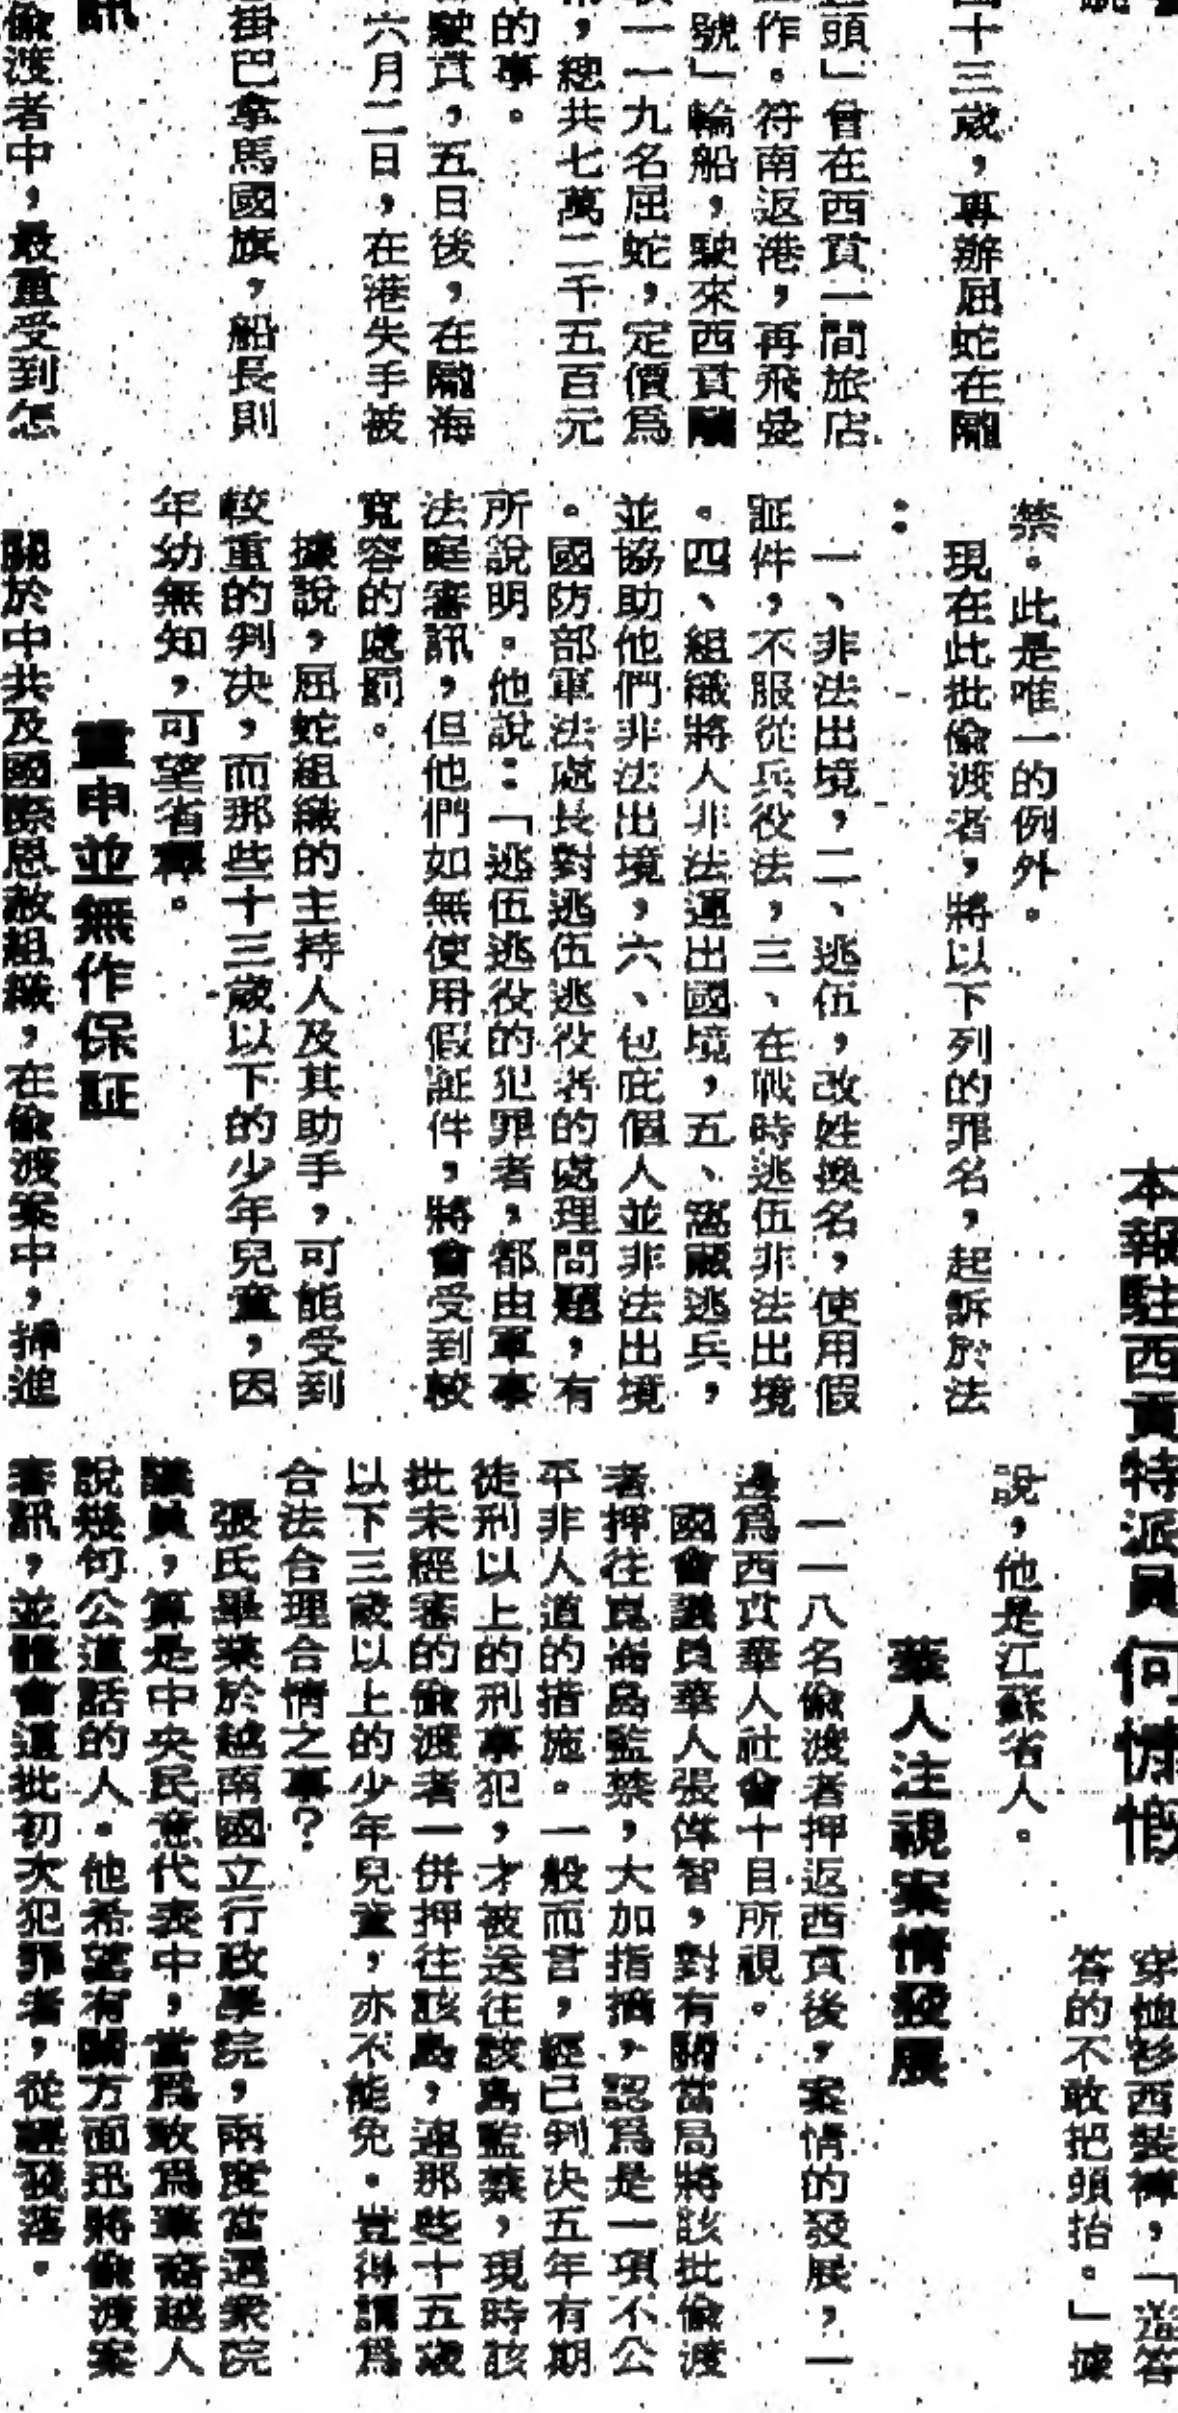 本報駐西貢特派員 何慷慨
國十三歲,專辦屈蛇在
頭」曾在西貢一間旅店
作。符南返港,再飛曼
號」輪船,駛來西貢
一一九名屈蛇,定價爲
,總共七萬二千五百元
的事。
駛貢,五日後,在海
六月二日,在港失手被
掛巴拿馬國旗,船長則
訊
偷渡者中,最重受到怎
禁。此是唯一的例外。
現在此批偷渡者,將以下列的罪名,起訴於法
:
一、非法出境,二、逃伍,改姓換名,使用假
証件,不服從兵役法,三、在戰時逃伍非法出境
。四、組織將人非法運出國境,五、窩藏逃兵,
並協助他們非法出境,六、包庇個人並非法出境
。國防部軍法處長對逃伍逃役者的處理問題,有
所說明。他說:「逃伍逃役的犯罪者,都由軍事
法庭審訊,但他們如無使用假証件,將會受到較
寬容的處罰。
據說,屈蛇組織的主持人及其助手,可能受到
較重的判决,而那些十三歲以下的少年兒童,因
年幼無知,可望省釋。
重申並無作保証
關於中共及國際恩赦組織,在偷渡案中,揷進
穿恤衫西裝褲,「
答的不敢把頭抬。」據
說,他是江蘇省人。
華人注視案情發展
一一八名偷渡者押返西貢後,案情的發展,一
邊爲西貢華人社會十目所視。
國會議員華人張偉智,對有關當局將該批偷渡
者押往崑崙島監禁,大加指摘,認爲是一項不公
平非人道的措施。一般而言,經已判决五年有期
徒刑以上的刑事犯,才被送往該島監禁,現時該
批未經審的偷渡者一併押往該島,連那些十五歲
以下三歲以上的少年兒童,亦不能免。豈得謂爲
合法合理合情之事?
張氏畢業於越南國立行政學院,兩度當選衆院
議員,算是中央民意代表中,當爲敢爲華裔越人
說幾句公道話的人。他希望有關方面迅將偷渡案
審訊,並體會這批初次犯罪者,從輕發落。